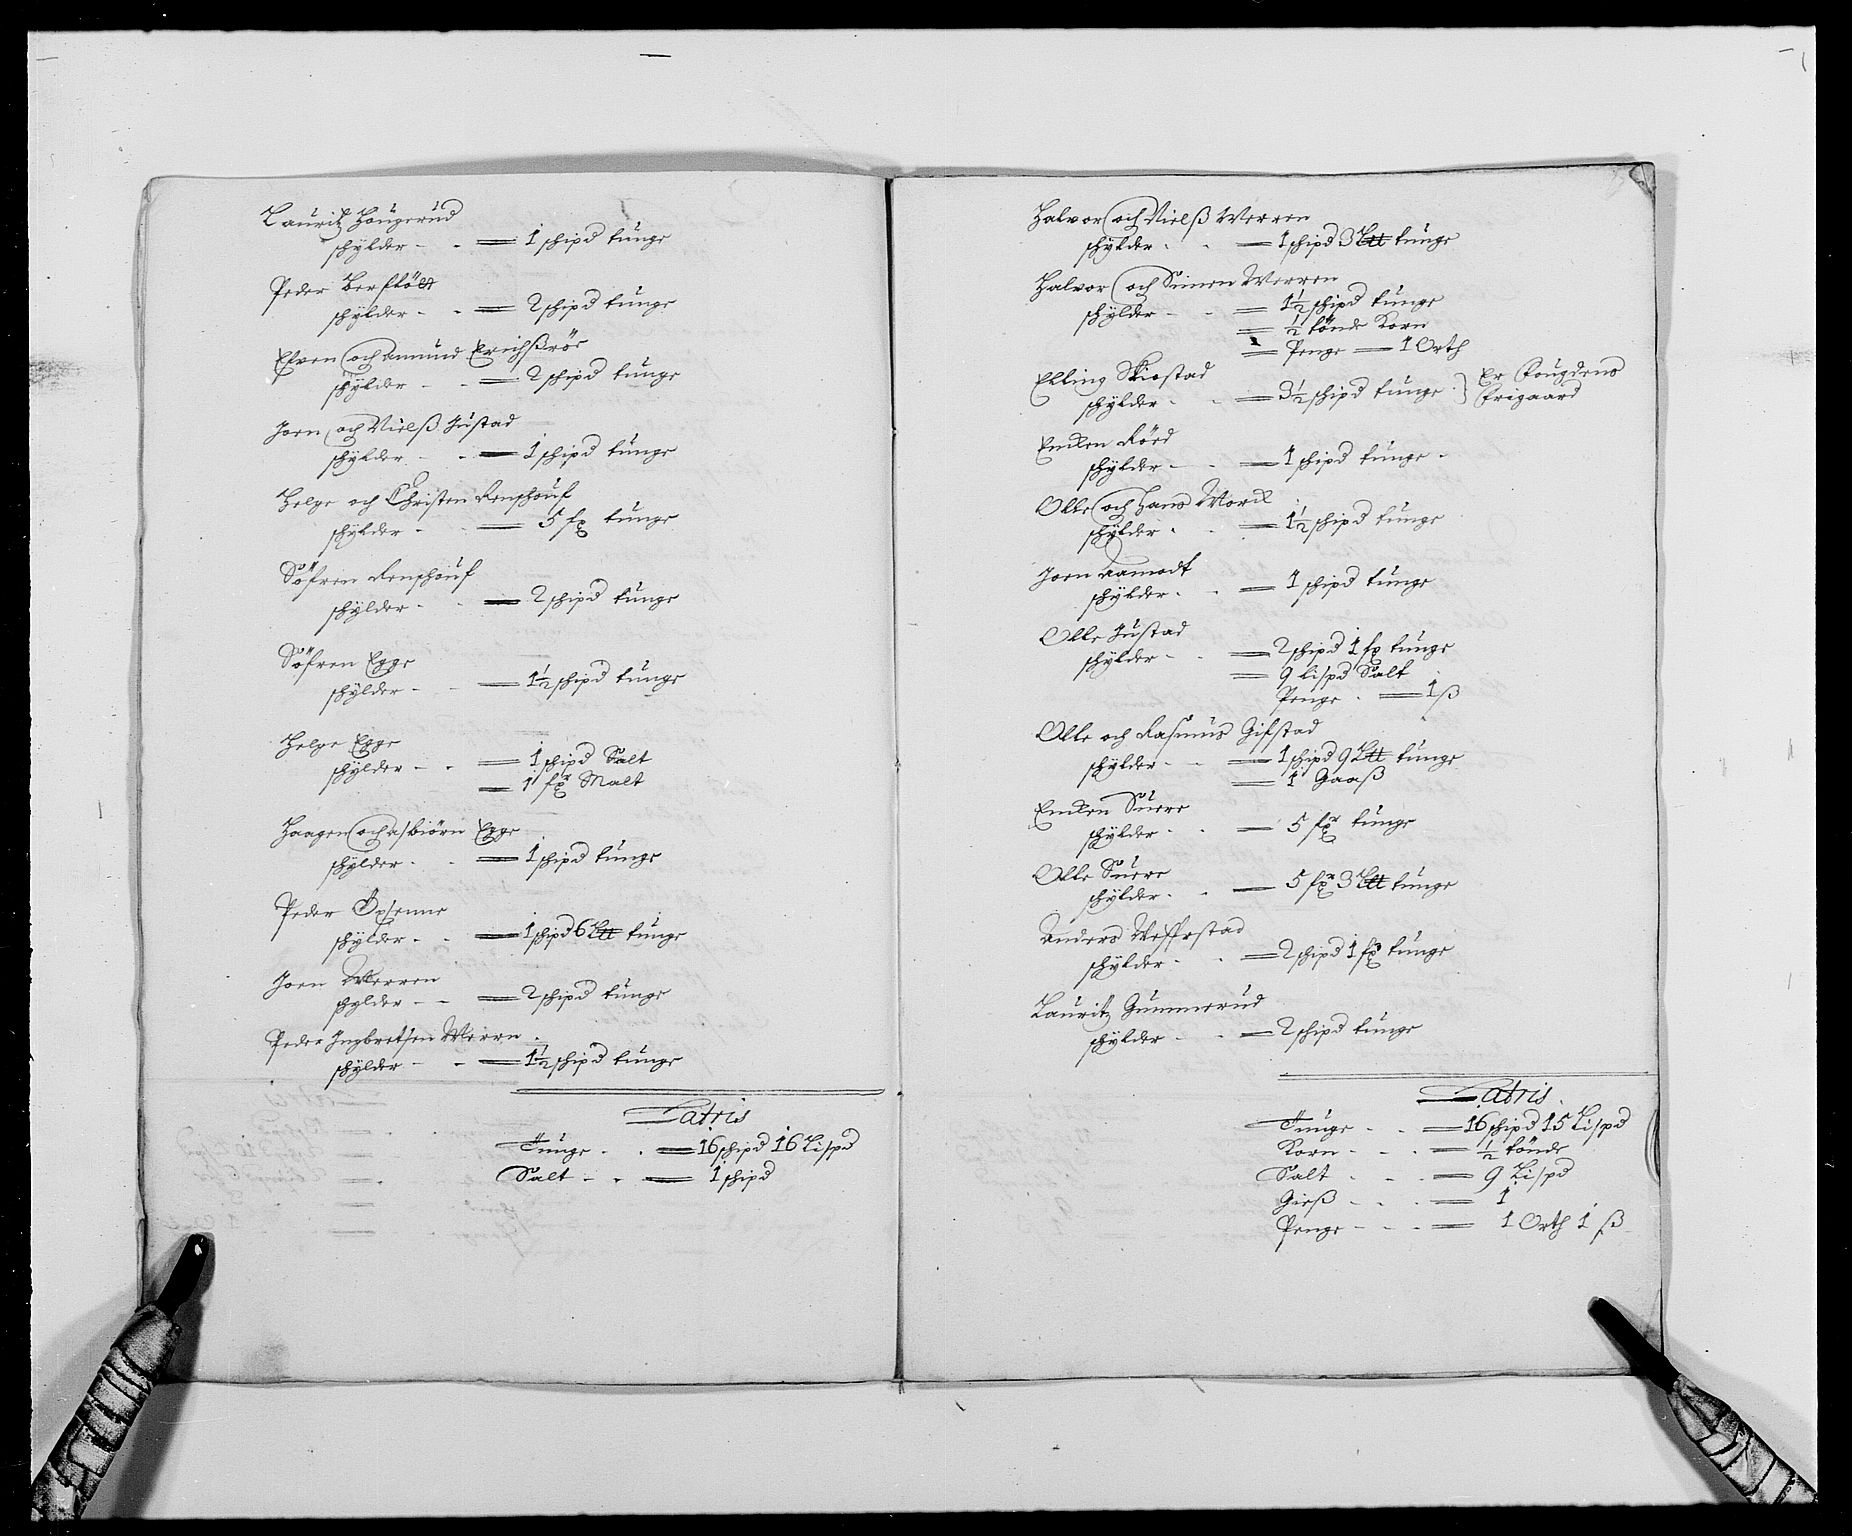 Lauritz Haugerud
schylder - - 1 schipd tunge
Peder Berfslöet
schylder - - 2 schipd tunge
Efven och Amund Erichßröe
schylder - - 2 schipd tunge
Joen och Nielß Justad
schylder - - 1 schipd tunge
Helge och Christen Renshouf
schylder - 5 fx tunge
Söfren Renshouf
schylder - - 2 schipd tunge
Söfren Egge
schylder - - 1½ schipd tunge
Helge Egge
schylder - - 1 schipd Salt
1 fx Malt
Haagen och Asbiörn Egge
schylder - - 1 schipd tunge
Peder Opsenne
schylder - - 1 schipd 6 Ltt tunge
Joen Werren
schylder - - 2 schipd tunge
Peder Ingbretsen Werrn
schylder - - 1½ schipd tunge
Latris
Tunge - - 16 schipd 16 Lispd
Salt - - 1 schipd
Halvor och Nielß Werren
schylder - - 1 schipd 3 Ltt tunge
Halvor och Simen Werren
schylder - - 1½ schipd tunge
½ tönde Korn
Penge 1 Orth
Elling Skiostad
schylder - - 3½ schipd tunge } Er Fougdens
Frigaard
Endten Röed
schylder - - 1 schipd tunge
Olle och Hans Moric
schylder - - 1½ schipd tunge
Joen Aamodt
schylder - - 1 schipd tunge
Olle Justad
schylder - - 2 schipd 1 fx tunge
9 Lispd Salt
Penge - 1 ß
Olle och Rasmus Gifstad
schylder - - 1 schipd 9 Ltt tunge
1 Gaaß
Endten Suere
schylder - - 5 fxr tunge
Olle Suere
schylder - - 5 fxr 3 Ltt tunge
Anders Weffestad
schylder - - 2 schipd 1 fx tunge
Lauritz Gummerud
schylder - - 2 schipd tunge
Latris
Tunge - - 16 schipd 15 Lispd
Korn - - - ½ tönde
Salt - - - 9 Lispd
Gieß - - - 1
Penge - - - 1 Orth 1 ß